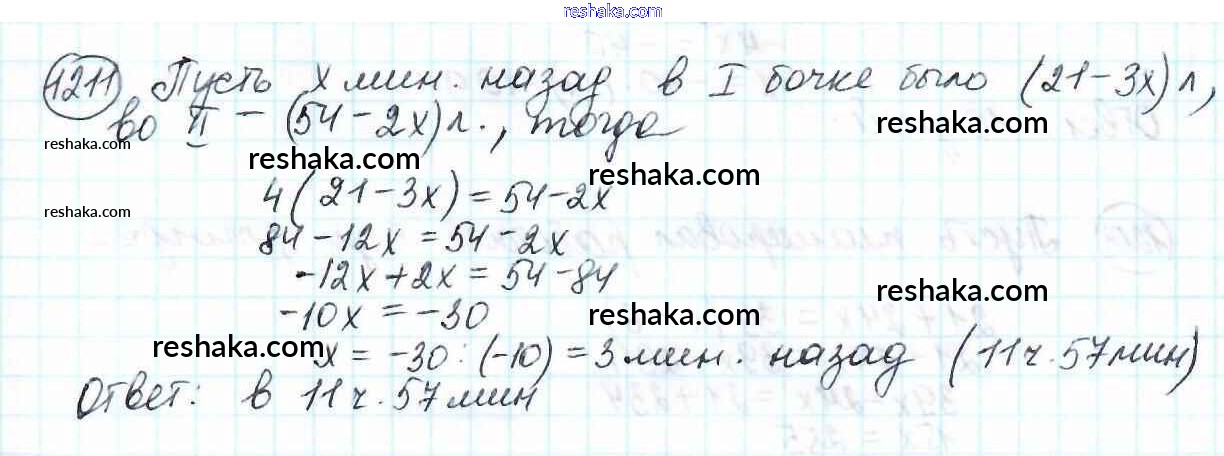 reshaka.com
1211 Пусть x мин. назад в I бочке было (21-3x) л,
во II - (54-2x) л., тогда
reshaka.com
reshaka.com
reshaka.com
reshaka.com
4(21-3x)=54-2x
reshaka.com
84-12x=54-2x
-12x+2x=54-84
reshaka.com
-10x=-30
reshaka.com
reshaka.com
x=-30:(-10)=3 мин. назад (11 ч. 57 мин)
Ответ: в 11 ч. 57 мин